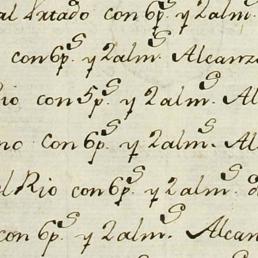 al Estado con 6p.s y 2 alm.s
con 6p.s y 2 alm.s Alcanz
io con 5p.s y 2 alm.s Al
no con 6p.s y 2 alm.s Al
el Rio con 6p.s y 2 alm.s d
con 6p.s y 2 alm.s Alcan